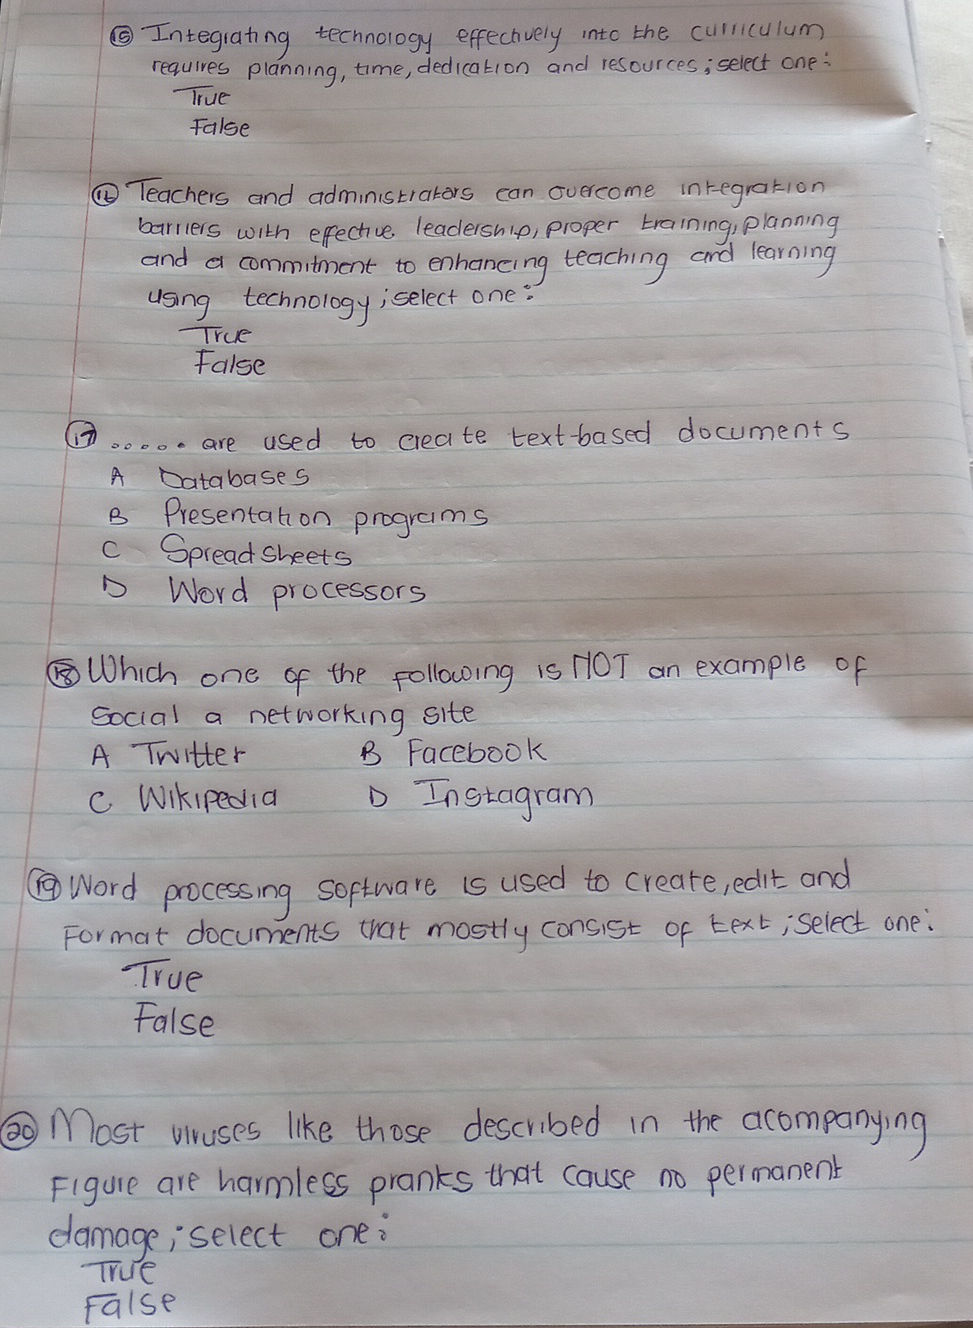 15 Integrating technology effectively into the curriculum
requires planning, time, dedication and resources; select one:
True
False
16 Teachers and administrators can overcome integration
barriers with effective leadership, proper training, planning
and a commitment to enhancing teaching and learning
using technology; select one:
True
False
17 ..... are used to create text-based documents
A Databases
B Presentation programs
C Spreadsheets
D Word processors
18 Which one of the following is NOT an example of
social a networking site
A Twitter B Facebook
C Wikipedia D Instagram
19 Word processing software is used to create, edit and
Format documents that mostly consist of text; select one:
True
False
20 Most viruses like those described in the acompanying
Figure are harmless pranks that cause no permanent
damage; select one:
True
False